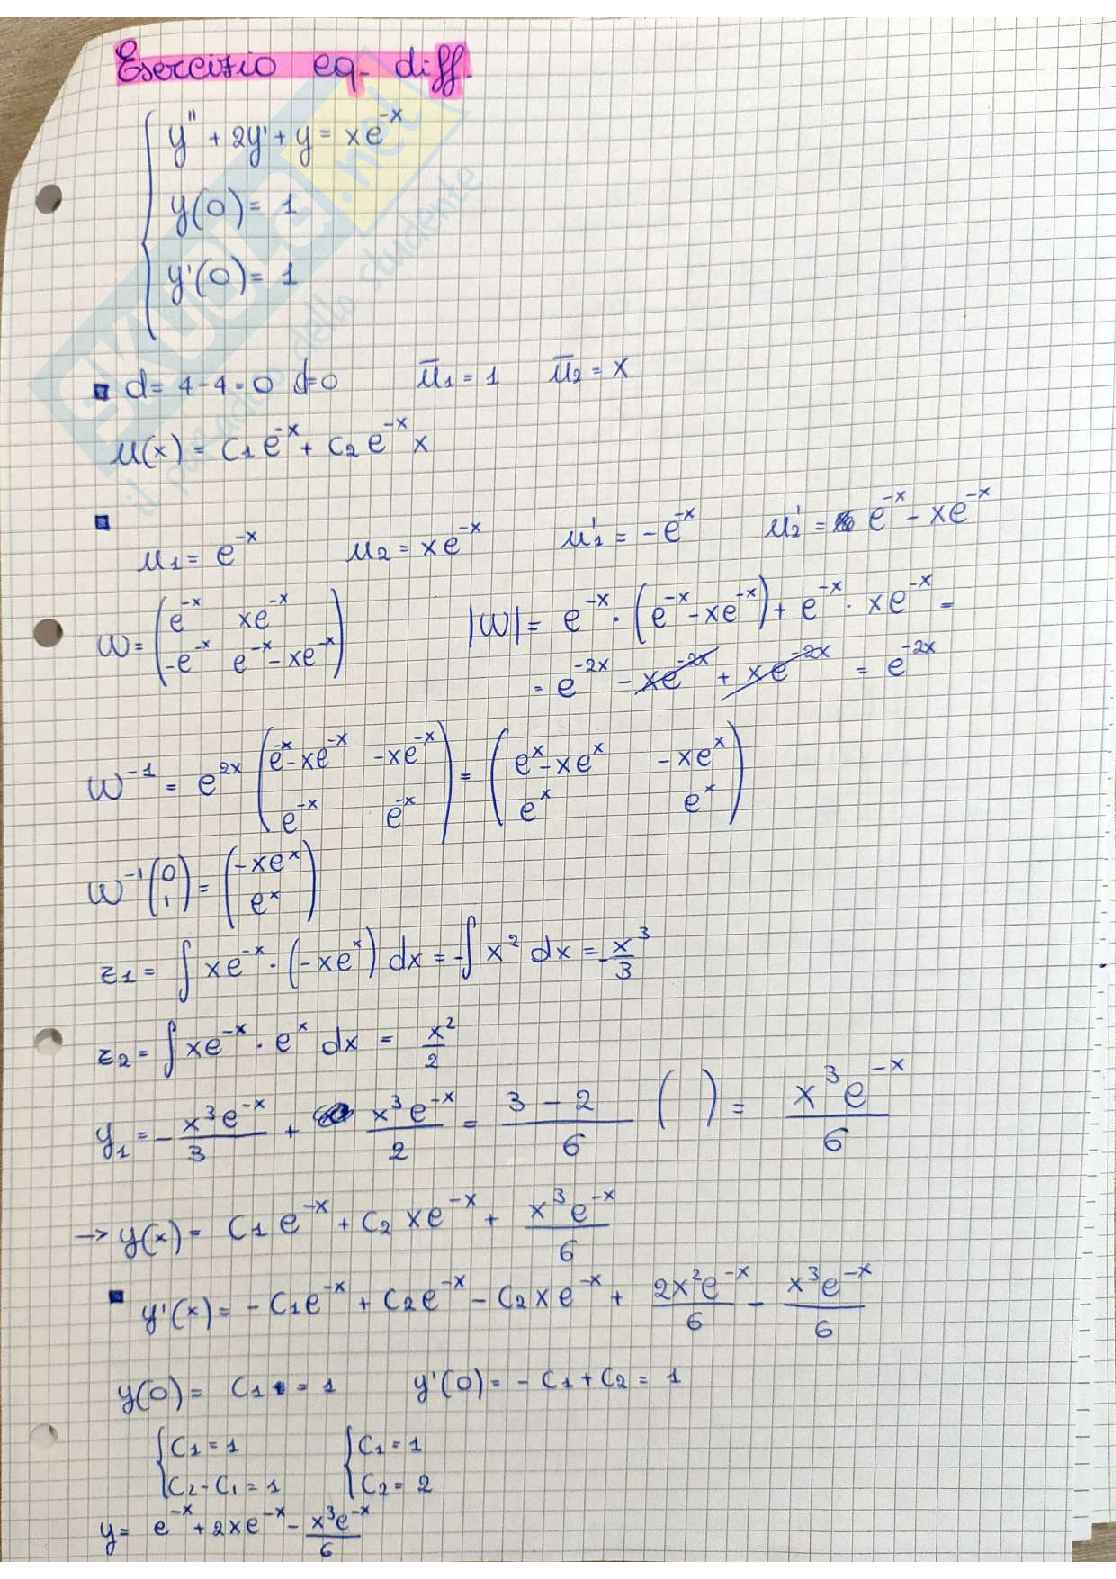 Esercizio eq. diff.
y'' + 2y' + y = xe^-x
y(0) = 1
y'(0) = 1
d = 4 - 4 = 0 d=0 ū1 = 1 ū2 = x
u(x) = C1 e^-x + C2 e^-x x
u1 = e^-x u2 = xe^-x u1' = -e^-x u2' = e^-x - xe^-x
W = (e^-x xe^-x
-e^-x e^-x - xe^-x)
|W| = e^-x · (e^-x - xe^-x) + e^-x · xe^-x =
= e^-2x - xe^-2x + xe^-2x = e^-2x
W^-1 = e^2x (e^-x - xe^-x -xe^-x
e^-x e^-x) = (e^x - xe^x -xe^x
e^x e^x)
W^-1 (0
1) = (-xe^x
e^x)
z1 = ∫ xe^-x · (-xe^x) dx = -∫ x^2 dx = -x^3/3
z2 = ∫ xe^-x · e^x dx = x^2/2
y1 = - x^3 e^-x/3 + x^3 e^-x/2 = 3 - 2/6 ( ) = x^3 e^-x/6
→ y(x) = C1 e^-x + C2 xe^-x + x^3 e^-x/6
y'(x) = -C1e^-x + C2e^-x - C2xe^-x + 2x^2e^-x/6 - x^3e^-x/6
y(0) = C1 = 1 y'(0) = -C1 + C2 = 1
C1 = 1 C1 = 1
C2 - C1 = 1 C2 = 2
y = e^-x + 2xe^-x - x^3e^-x/6